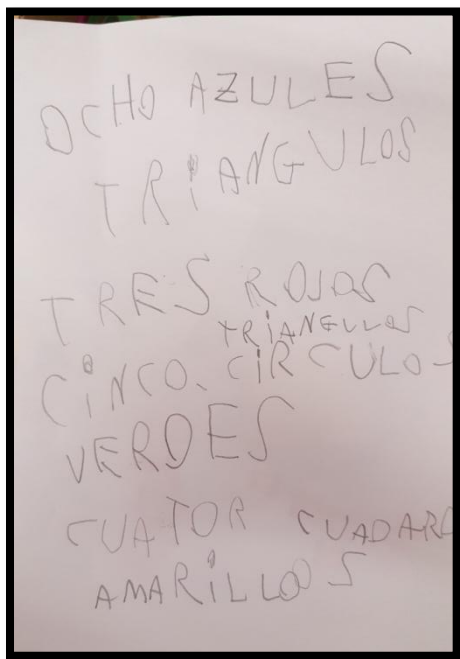 OCHO AZULES
TRiANGULOS
TRES ROJOS
TRiANGULOS
CiNCO. CiRCULOS
VERDES
CUATOR CUADARO
AMARiLLOOS